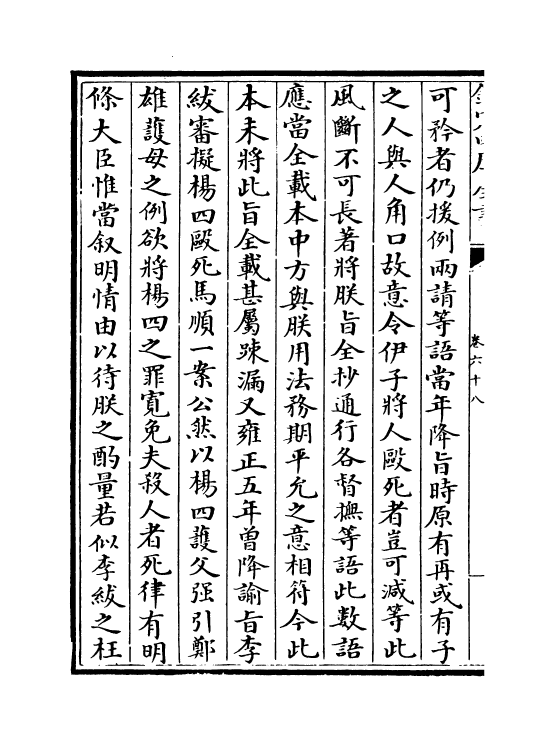 卷六十八
可矜者仍援例兩請等語當年降旨時原有再或有子
之人與人角口故意令伊子將人毆死者豈可減等此
風斷不可長著將朕旨全抄通行各督撫等語此數語
應當全載本中方與朕用法務期平允之意相符今此
本未將此旨全載甚屬踈漏又雍正五年曽降諭旨李
紱審擬楊四毆死馬順一案公然以楊四護父强引鄭
雄護母之例欲將楊四之罪寛免夫殺人者死律有明
條大臣惟當叙明情由以待朕之酌量若似李紱之枉